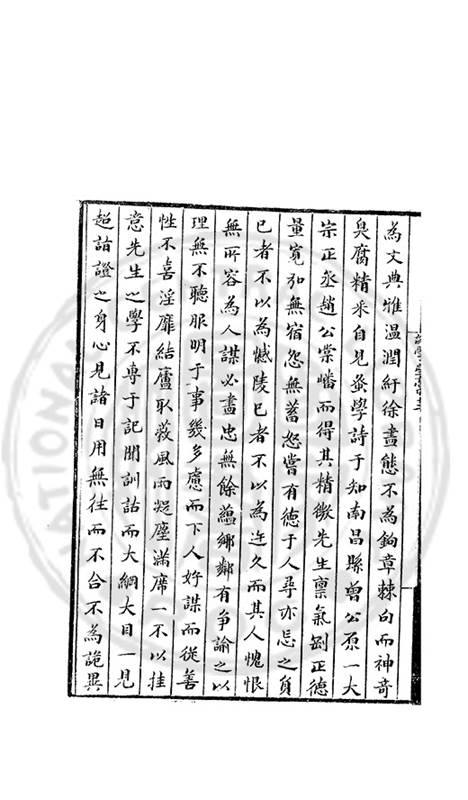 為文典雅溫潤紆徐盡態不為鉤章棘句而神奇
臭腐精采自見蚤學詩于知南昌縣曾公原一大
宗正丞趙公崇嶓而得其精微先生禀氣剛正德
量寬弘無宿怨無蓄怒嘗有德于人尋亦忘之負
已者不以為憾陵已者不以為迕久而其人愧恨
無所容為人謀必盡忠無餘蘊鄉鄰有爭論之以
理無不聽服明于事幾多應而下人好謀而從善
性不喜淫靡結廬取蔽風雨凝塵滿席一不以挂
意先生之學不專于記聞訓詁而大綱大目一見
超詣證之身心見諸日用無往而不合不為詭異